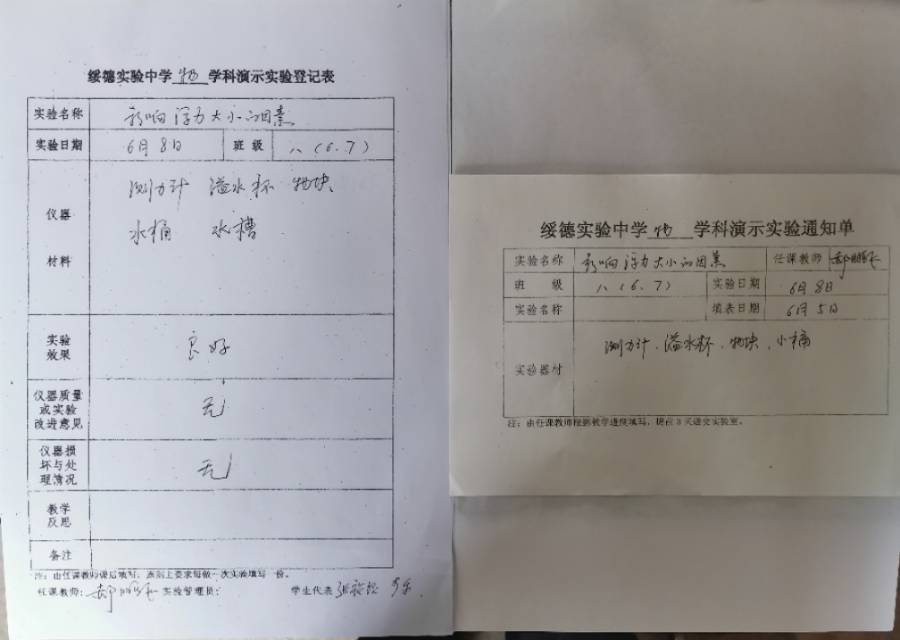 绥德实验中学 物 学科演示实验登记表
实验名称 影响浮力大小的因素
实验日期 6月8日 班级 八(6.7)
仪器材料 测力计 溢水杯 物块
水桶 水槽
实验效果 良好
仪器质量或实验改进意见 无
仪器损坏与处理情况 无
教学反思
备注
注：由任课教师课后填写，原则上要求每做一次实验填写一份。
任课教师： 实验管理员： 学生代表
绥德实验中学 物 学科演示实验通知单
实验名称 影响浮力大小的因素 任课教师
班级 八(6.7) 实验日期 6月8日
实验名称 填表日期 6月5日
实验器材 测力计.溢水杯.物块.小桶
注：由任课教师根据教学进度填写，提前3天送交实验室。